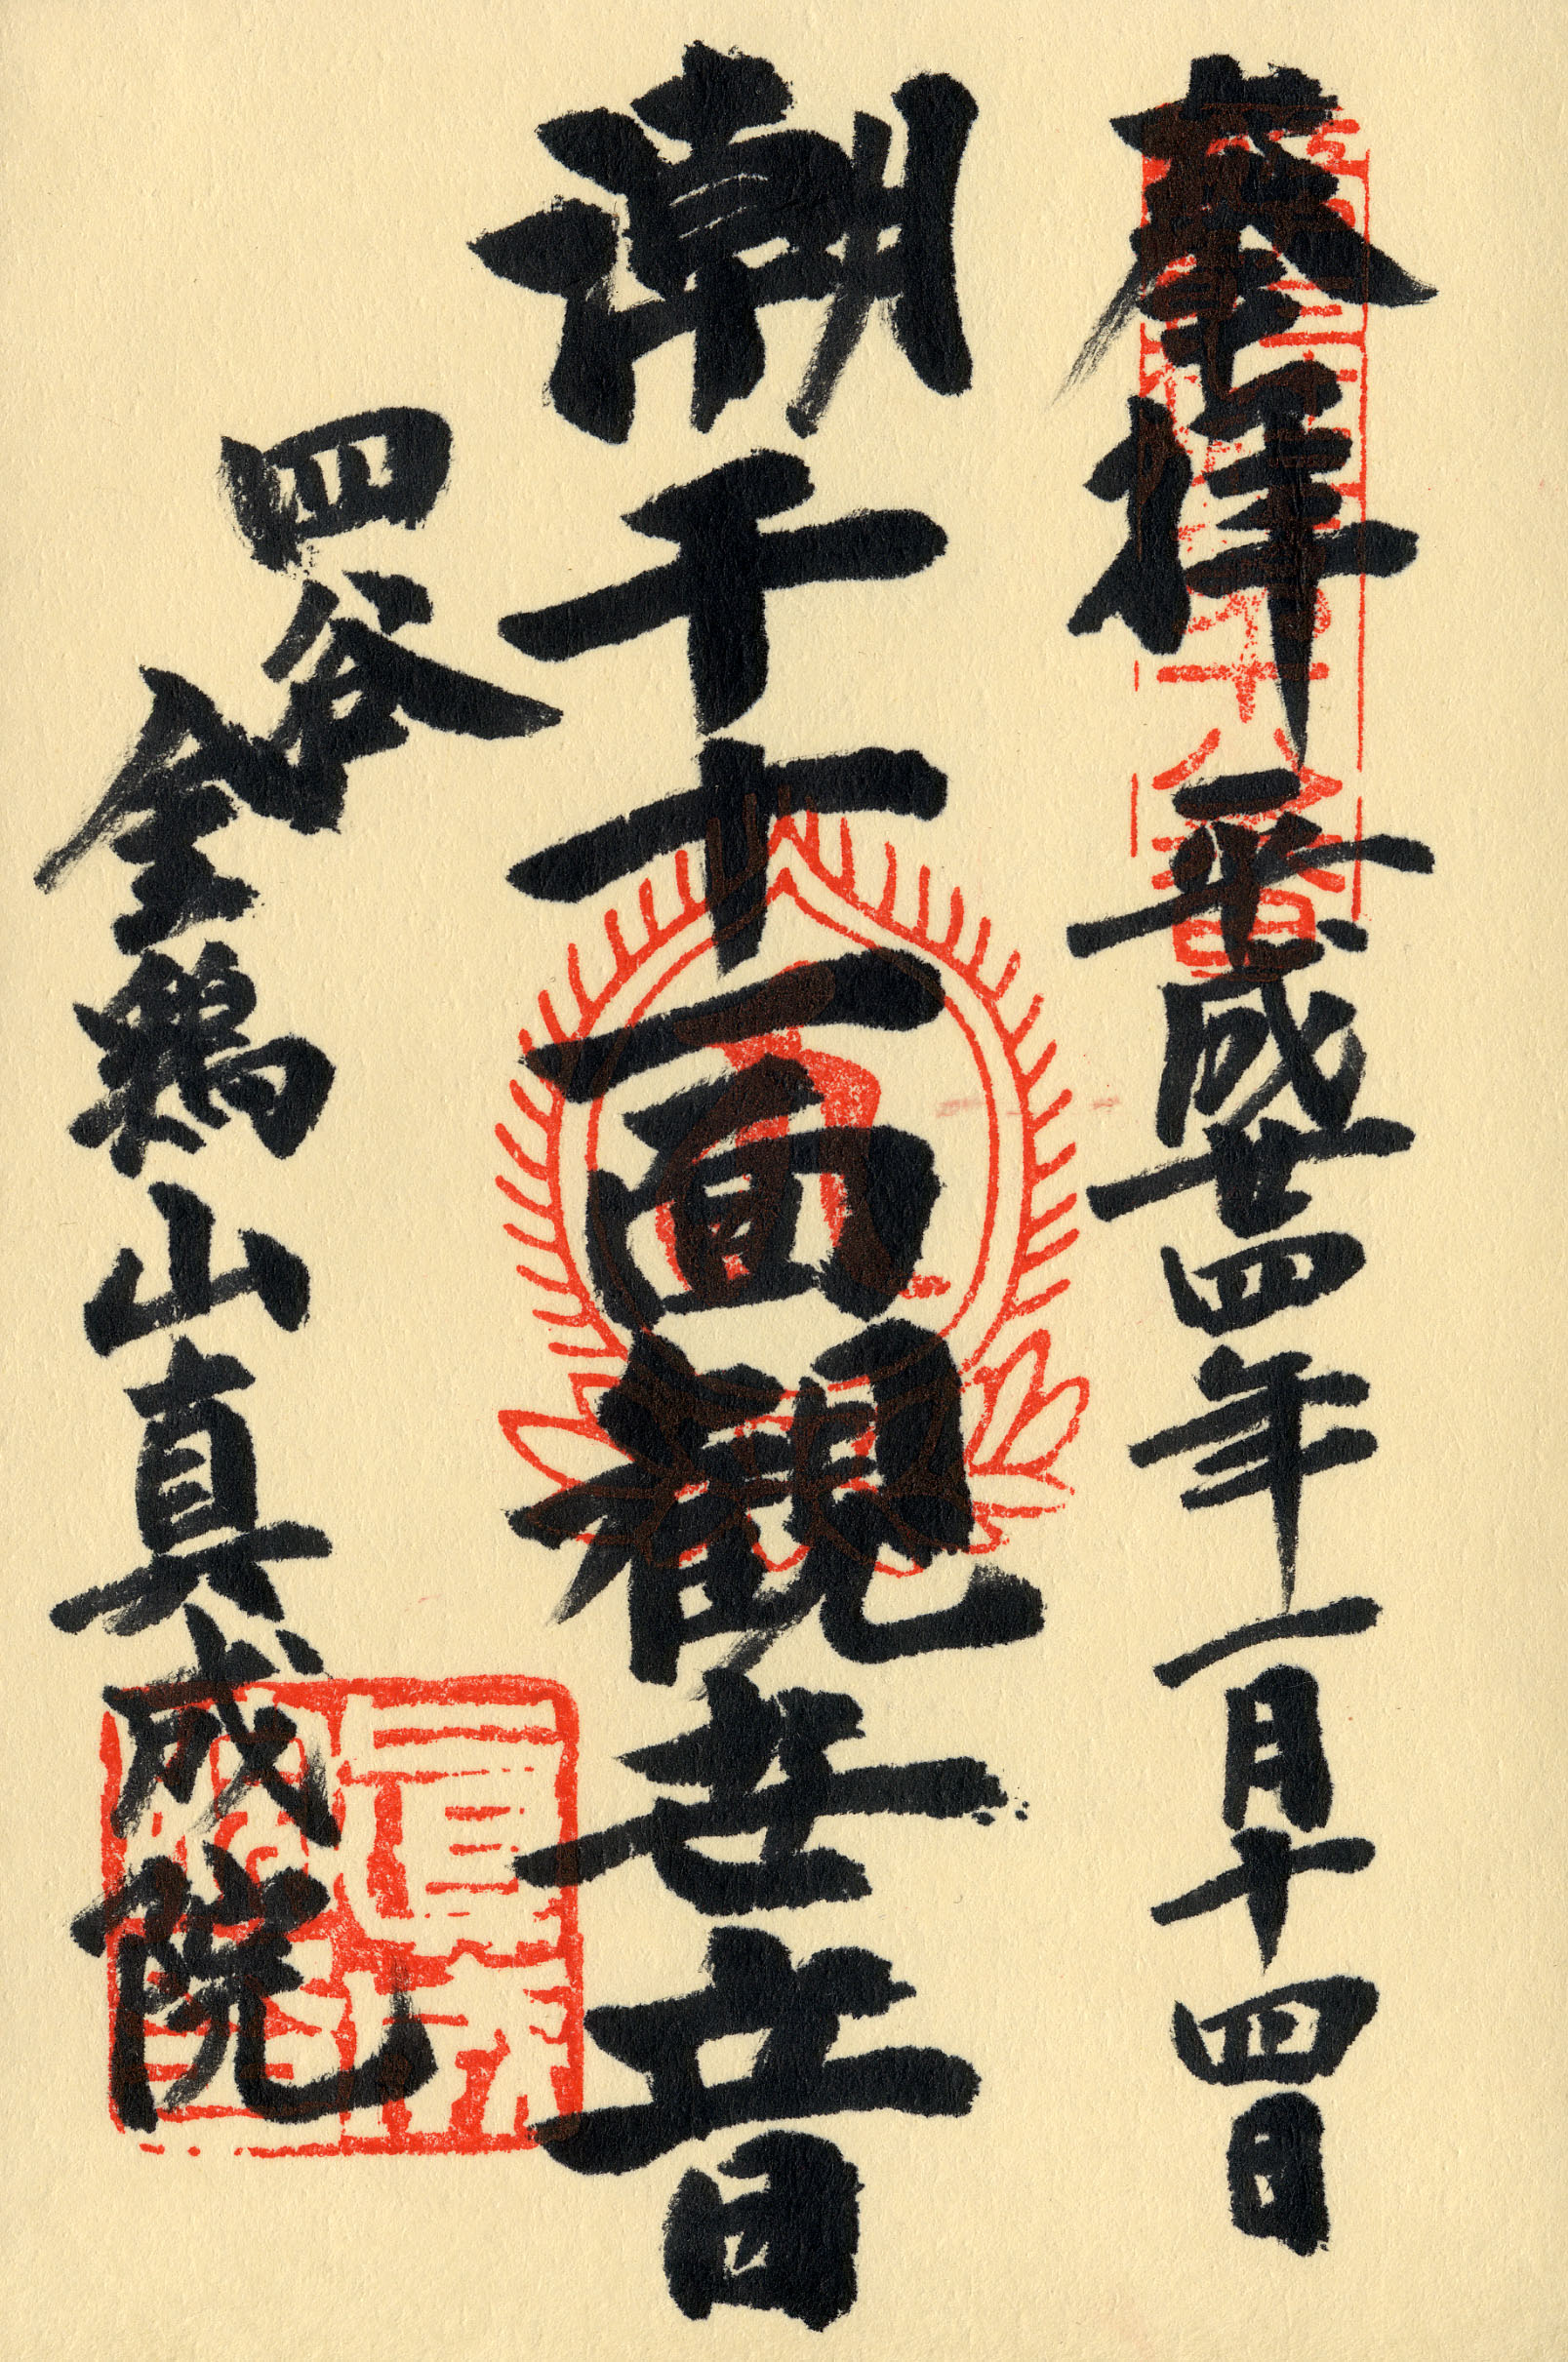 奉拝 平成廿四年一月十四日
潮干十一面観世音
四谷
金鶏山真成院